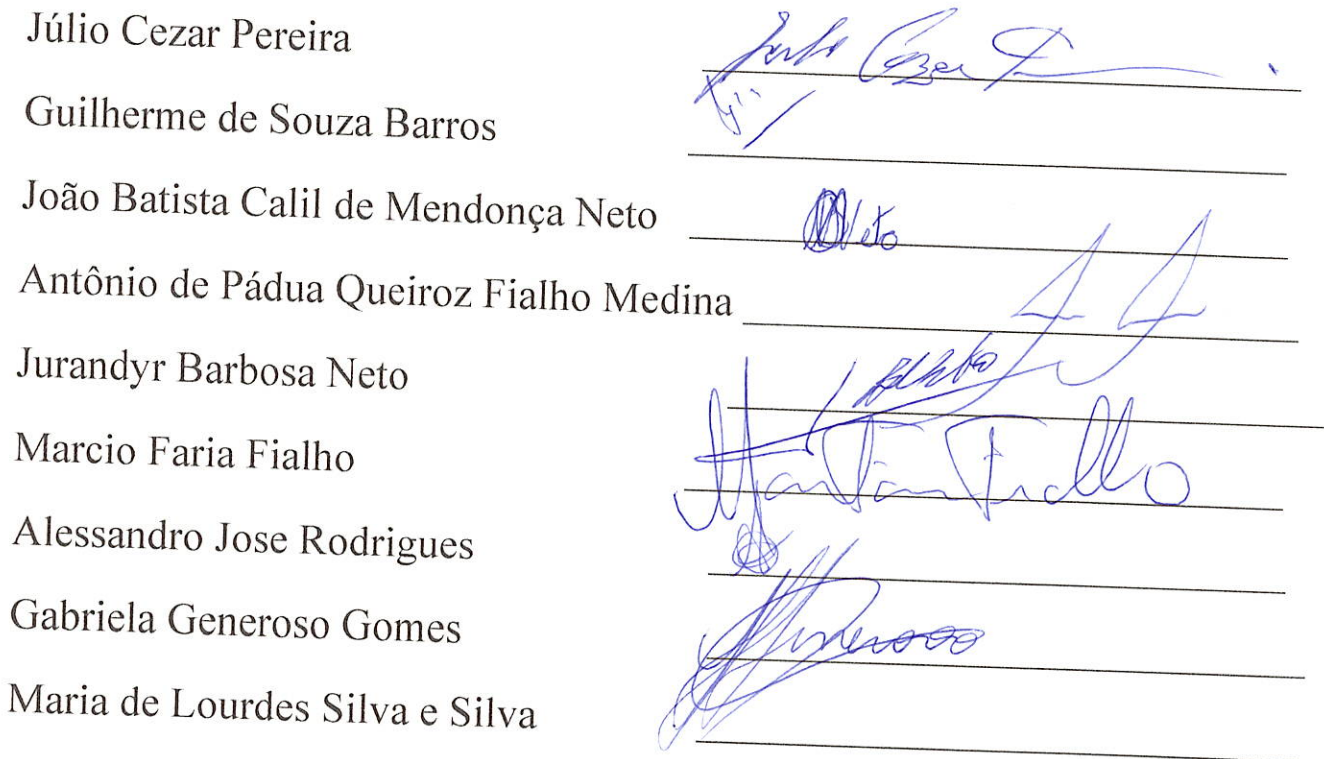 Júlio Cezar Pereira
Guilherme de Souza Barros
João Batista Calil de Mendonça Neto Neto
Antônio de Pádua Queiroz Fialho Medina
Jurandyr Barbosa Neto
Marcio Faria Fialho
Alessandro Jose Rodrigues
Gabriela Generoso Gomes
Maria de Lourdes Silva e Silva